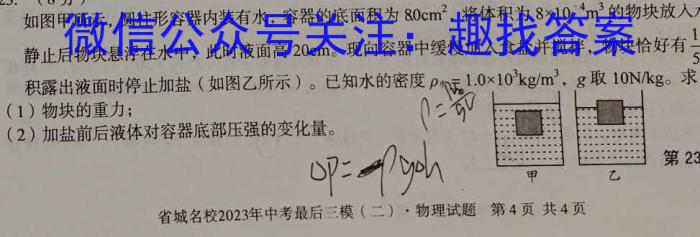 23.（8分）
如图甲所示，圆柱形容器内装有水，容器的底面积为80cm²，将体积为8×10⁻⁴m³的物块放入水
静止后物块悬浮在水中，此时液面高20cm。现向容器中缓慢加入食盐并搅拌，物块恰好有1/5
微信公众号关注：趣找答案
积露出液面时停止加盐（如图乙所示）。已知水的密度ρ水=1.0×10³kg/m³，g取10N/kg。求
（1）物块的重力；
（2）加盐前后液体对容器底部压强的变化量。
甲
乙
第23
省城名校2023年中考最后三模（二）·物理试题 第4页 共4页